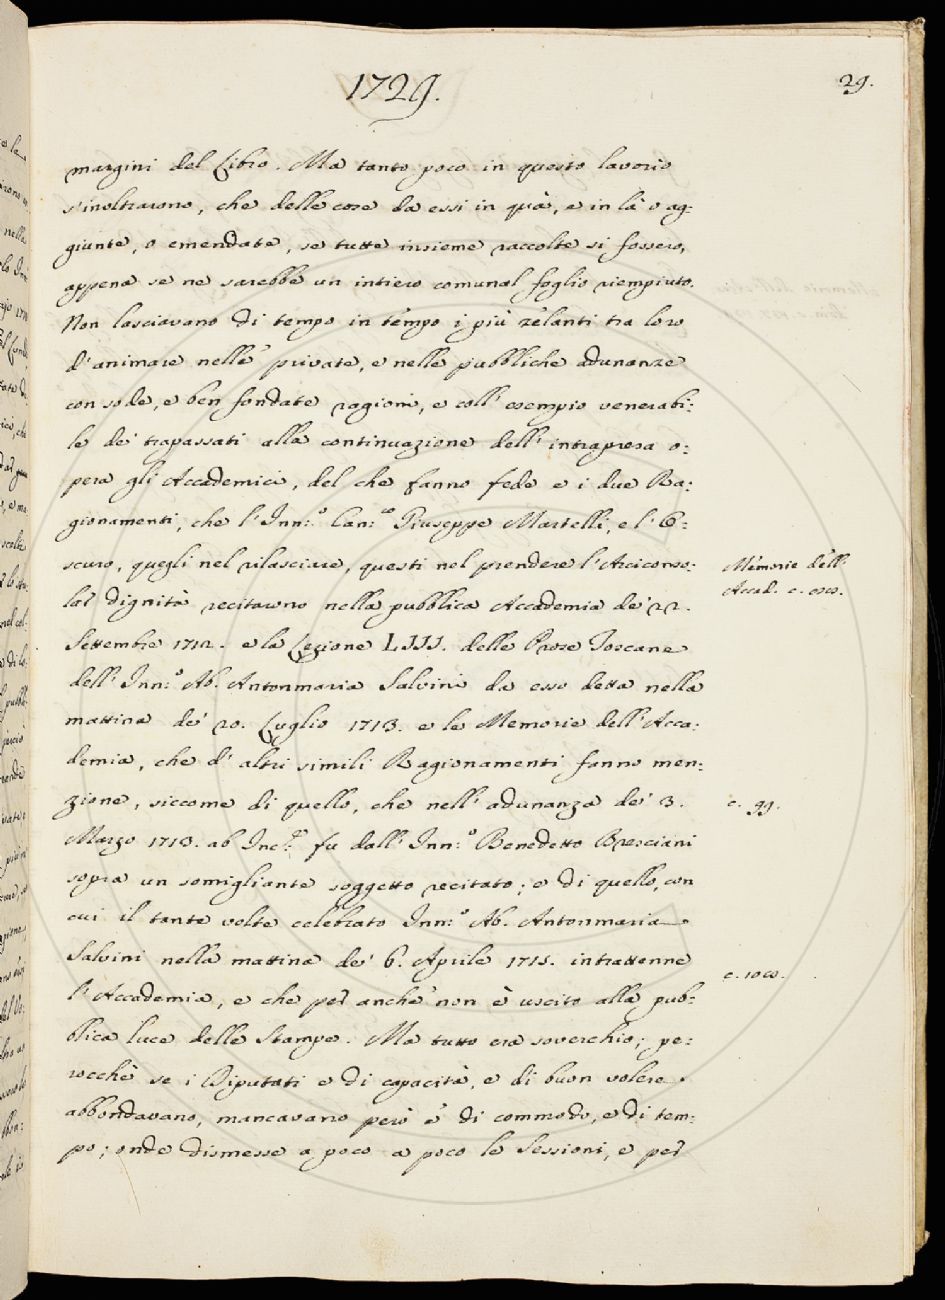 1729.
29.
margini del Libro. Ma tanto poco in questo lavorio
s'inoltrarono, che delle cose da essi in quà, e in là o ag:
giunte, o emendate, se tutte insieme raccolte si fossero,
appena se ne sarebbe un intiero comunal foglio riempiuto.
Non lasciavano di tempo in tempo i più zelanti tra loro
d'animare nelle private, e nelle pubbliche adunanze
con sode, e ben fondate ragioni, e coll'esempio venerabi:
le de' trapassati alla continuazione dell'intrapresa o:
pera gli Accademici, del che fanno fede e i due Ra:
gionamenti, che l'Inn:o Can:co Giuseppe Martelli, e l'O:
scuro, quegli nel rilasciare, questi nel prendere l'Arciconso:
lar dignità recitarono nella pubblica Accademia de' 22.
Settembre 1712. e la Lezione LIII. delle Prose Toscane
dell'Inn:o Ab. Antonmaria Salvini da esso detta nella
mattina de' 20. Luglio 1713. e le Memorie dell'Acca:
demia, che d'altri simili Ragionamenti fanno men:
zione, siccome di quello, che nell'adunanza de' 3.
Marzo 1713. ab Inc:e fu dall'Inn:o Benedetto Bresciani
sopra un somigliante soggetto recitato; e di quello, con
cui il tante volte celebrato Inn:o Ab. Antonmaria
Salvini nella mattina de' 6. Aprile 1715. intrattenne
l'Accademia, e che per anche non è uscito alla pub:
blica luce delle Stampe. Ma tutto era soverchio; pe:
rocchè se i Diputati e di capacità, e di buon volere
abbondavano, mancavano però e di commodo, e di tem:
po; onde dismesse a poco a poco le Sessioni, e per
Memorie dell'
Accad. c.
c. 99.
c.